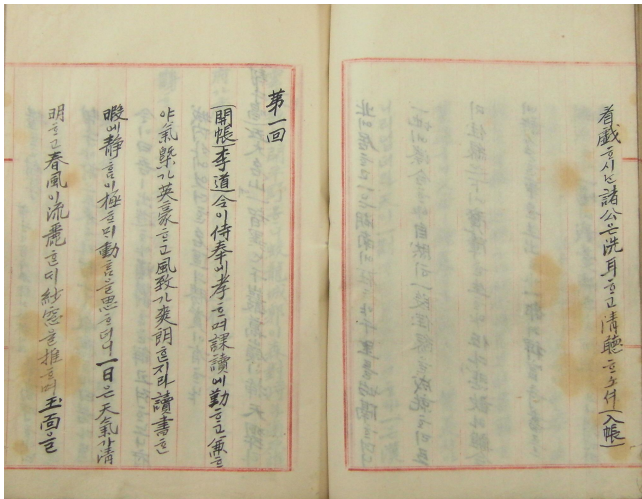 看戲ᄒᆞ시ᄂᆞᆫ諸公은洗耳ᄒᆞ고清聽ᄒᆞ소셔(入帳)
第一回
(開帳)李道令이侍奉에孝ᄒᆞ며課讀에勤ᄒᆞ고兼ᄒᆞ
야氣槩가英豪ᄒᆞ고風致가爽朗ᄒᆞᆫ지라讀書ᄒᆞᆫ
暇에静ᄒᆞᆷ이極ᄒᆞᄆᆡ動ᄒᆞᆷ을思ᄒᆞ더니一日은天氣가清
明ᄒᆞ고春風이流麗ᄒᆞᄆᆡ紗窓을推ᄒᆞ며玉面을